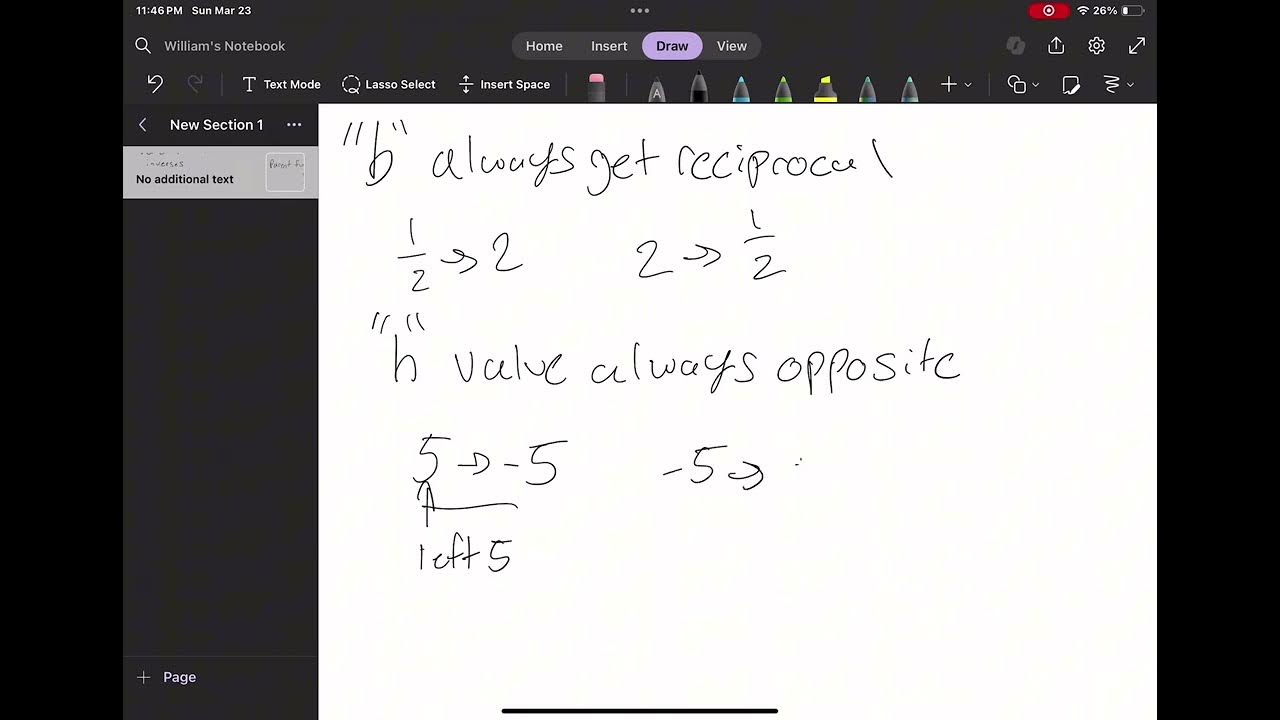 11:46 PM Sun Mar 23
26%
William's Notebook
Home Insert Draw View
Text Mode Lasso Select Insert Space
A
New Section 1
inverses
Parent fu
No additional text
"b" always get reciprocal
1/2 → 2 2 → 1/2
"h" value always opposite
5 → -5 -5 →
left 5
Page